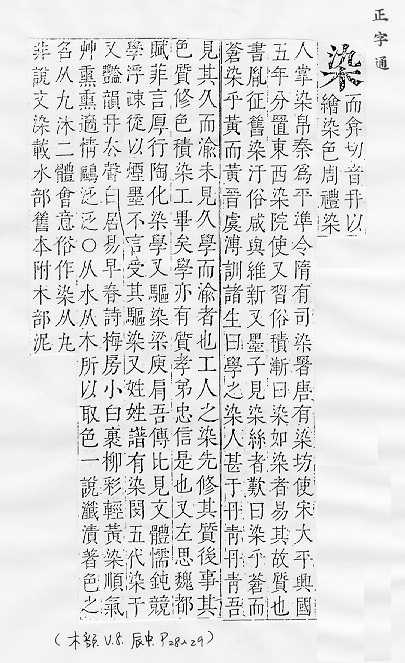 正字通
染
而弇切音冉以
繪染色周禮染
人掌染帛秦爲平準令隋有司染署唐有染坊使宋太平興國
五年分置東西染院使又習俗積漸曰染如染者易其故質也
書胤征舊染汙俗咸與維新又墨子見染絲者歎曰染乎蒼而
蒼染乎黃而黃晉虞溥訓諸生曰學之染人甚于丹靑丹靑吾
見其久而渝未見久學而渝者也工人之染先修其質後事其
色質修色積染工畢矣學亦有質孝弟忠信是也又左思魏都
賦菲言厚行陶化染學又驅染梁庾肩吾傳比見文體懦鈍競
學浮疎從以煙墨不言受其驅染又姓姓譜有染閔五代染干
又豔韻冉去聲白居易早春詩梅房小白裹柳彩輕黃染順氣
草熏熏適情鷗泛泛○从水从木所以取色一說瀸漬著色之
名从九沐二體會意俗作染从九
非說文染載水部舊本附木部泥
(木部 V.8. 辰中. P28~29)